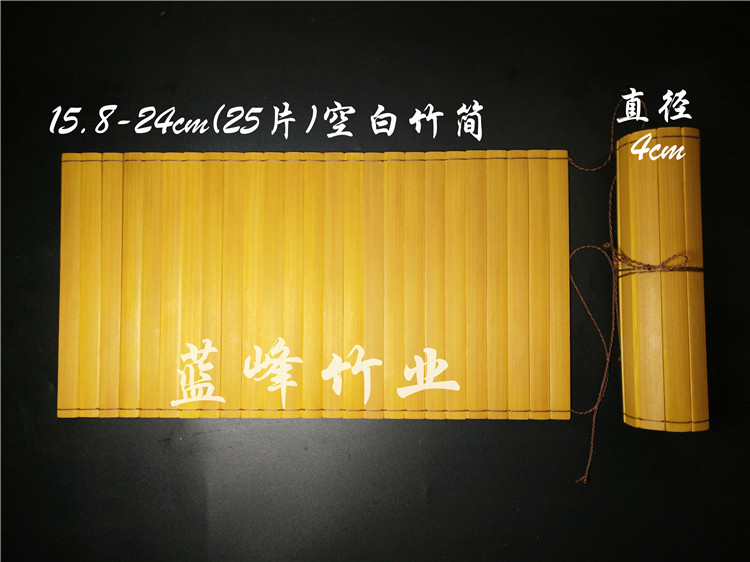 15.8-24cm(25片)空白竹简
直径
4cm
蓝峰竹业